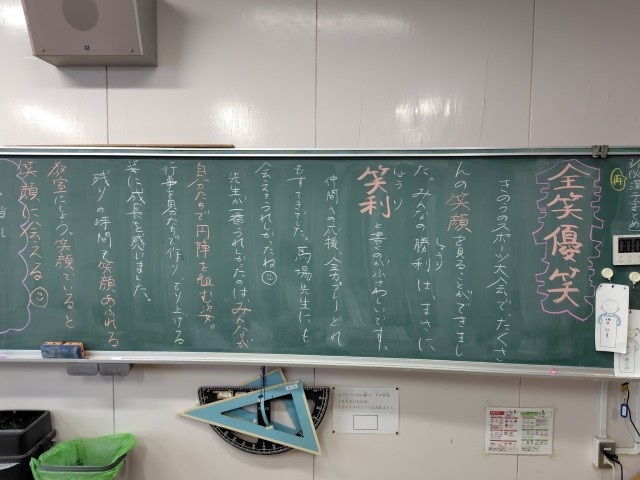 全笑優笑
きのうのスポーツ大会で、たくさ
んの笑顔を見ることができまし
た。みんなの勝利は、まさに、
しょうり
笑利
しょうり
と書くのがふさわしいです。
仲間への応援、全力プレーどれ
もすてきでした。馬場先生にも
会えてうれしかったね
先生が一番うれしかったのはみんなが
自分たちで円陣を組む姿。
行事を自分たちで作り上げる
姿に成長を感じました。
残りの時間も笑顔あふれる
教室にしよう。笑顔でいると
笑顔に会える